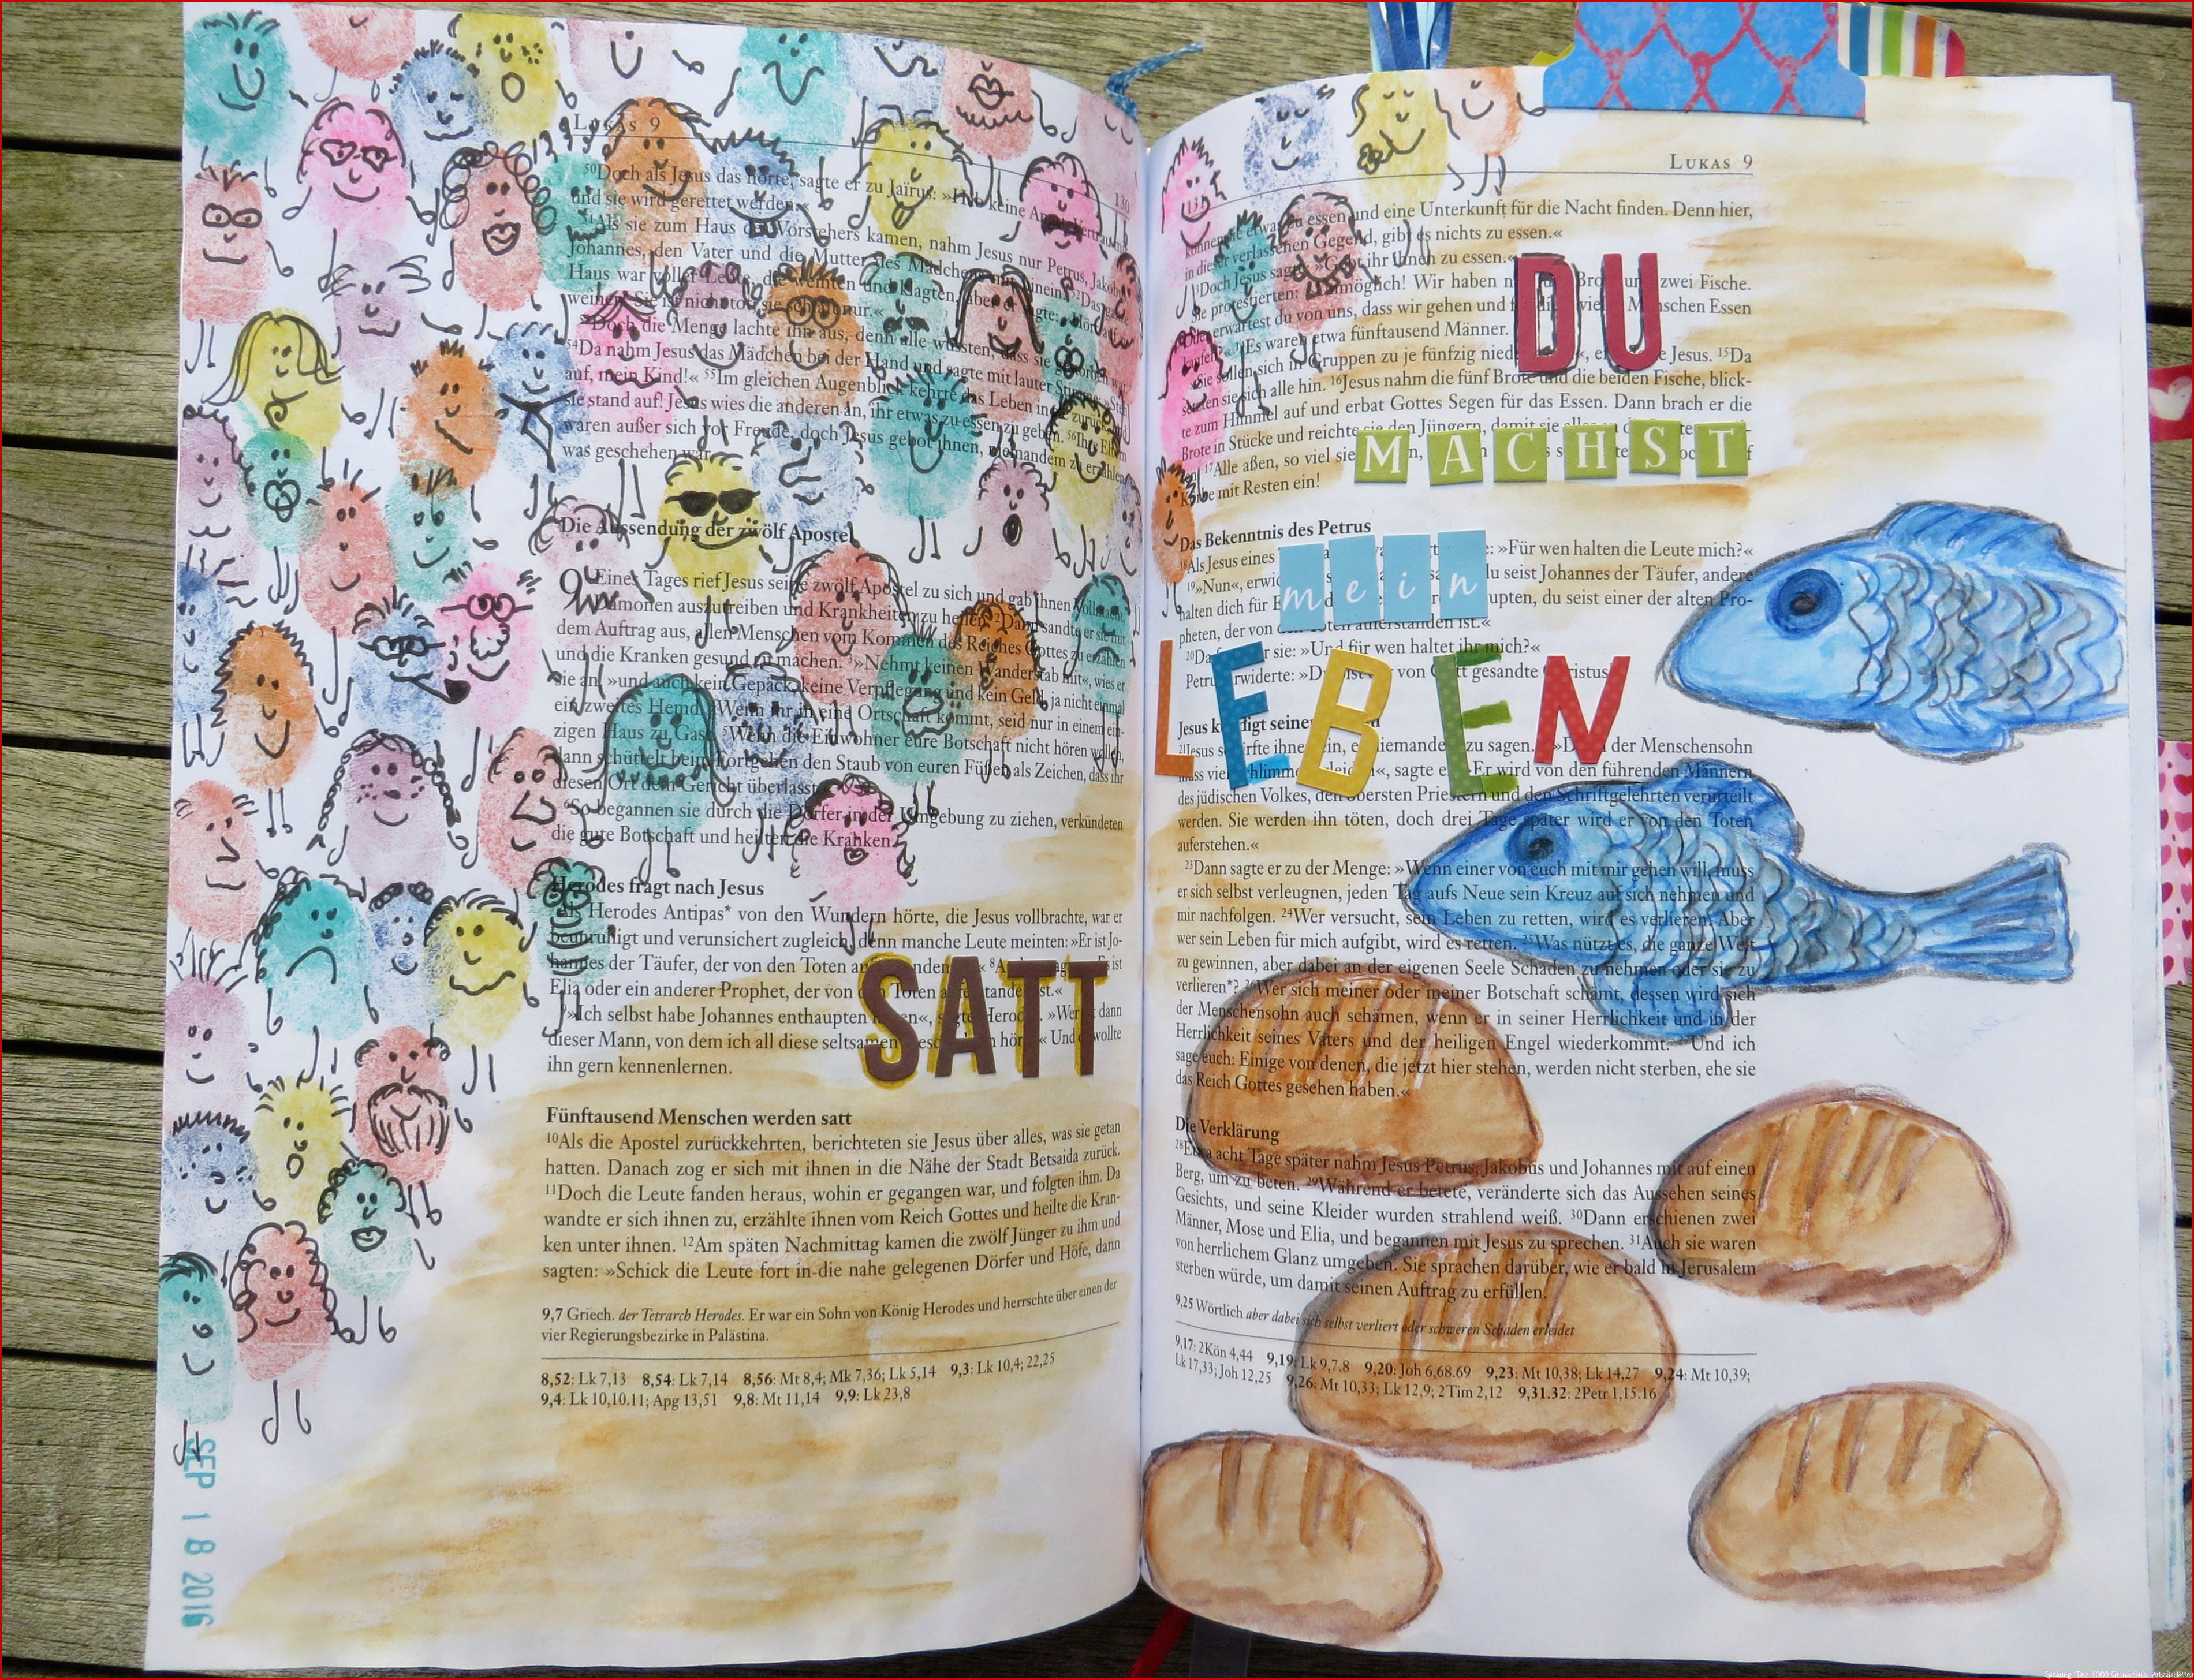 LUKAS 9
130
⁵⁰Doch als Jesus das hörte, sagte er zu Jaïrus: »Hab keine Angst. Vertrau
und sie wird gerettet werden.«
⁵¹Als sie zum Haus des Vorstehers kamen, nahm Jesus nur Petrus, Jakob
Johannes, den Vater und die Mutter des Mädchens mit hinein. ⁵²Das
Haus war voller Leute, die weinten und klagten, aber er sagte: »Hört auf
weinen! Sie ist nicht tot; sie schläft nur.«
⁵³Doch die Menge lachte ihn aus, denn alle wussten, dass sie gestorben war.
⁵⁴Da nahm Jesus das Mädchen bei der Hand und sagte mit lauter Stimme: »Steh
auf, mein Kind!« ⁵⁵Im gleichen Augenblick kehrte das Leben in sie zurück
sie stand auf! Jesus wies die anderen an, ihr etwas zu essen zu geben. ⁵⁶Ihre Eltern
waren außer sich vor Freude, doch Jesus gebot ihnen, niemandem zu erzählen,
was geschehen war.
Die Aussendung der zwölf Apostel
9 Eines Tages rief Jesus seine zwölf Apostel zu sich und gab ihnen Vollmacht,
Dämonen auszutreiben und Krankheiten zu heilen. ²Dann sandte er sie mit
dem Auftrag aus, allen Menschen vom Kommen des Reiches Gottes zu erzählen
und die Kranken gesund zu machen. ³»Nehmt keinen Wanderstab mit«, wies er
sie an, »und auch kein Gepäck, keine Verpflegung und kein Geld, ja nicht einmal
ein zweites Hemd. ⁴Wenn ihr in eine Ortschaft kommt, seid nur in einem ein-
zigen Haus zu Gast. ⁵Wenn die Einwohner eure Botschaft nicht hören wollen,
dann schüttelt beim Fortgehen den Staub von euren Füßen als Zeichen, dass ihr
diesen Ort dem Gericht überlasst.«
⁶So begannen sie durch die Dörfer in der Umgebung zu ziehen, verkündeten
die gute Botschaft und heilten die Kranken.
Herodes fragt nach Jesus
⁷Als Herodes Antipas* von den Wundern hörte, die Jesus vollbrachte, war er
beunruhigt und verunsichert zugleich, denn manche Leute meinten: »Er ist Jo-
hannes der Täufer, der von den Toten auf nden « ⁸A ist
Elia oder ein anderer Prophet, der von den Toten a tanden ist.«
⁹»Ich selbst habe Johannes enthaupten en«, sagte Herod . »Wer dann
dieser Mann, von dem ich all diese seltsamen hör « Und wollte
ihn gern kennenlernen.
SATT
Fünftausend Menschen werden satt
¹⁰Als die Apostel zurückkehrten, berichteten sie Jesus über alles, was sie getan
hatten. Danach zog er sich mit ihnen in die Nähe der Stadt Betsaida zurück.
¹¹Doch die Leute fanden heraus, wohin er gegangen war, und folgten ihm. Da
wandte er sich ihnen zu, erzählte ihnen vom Reich Gottes und heilte die Kran-
ken unter ihnen. ¹²Am späten Nachmittag kamen die zwölf Jünger zu ihm und
sagten: »Schick die Leute fort in die nahe gelegenen Dörfer und Höfe, dann
9,7 Griech. der Tetrarch Herodes. Er war ein Sohn von König Herodes und herrschte über einen der
vier Regierungsbezirke in Palästina.
8,52: Lk 7,13 8,54: Lk 7,14 8,56: Mt 8,4; Mk 7,36; Lk 5,14 9,3: Lk 10,4; 22,25
9,4: Lk 10,10.11; Apg 13,51 9,8: Mt 11,14 9,9: Lk 23,8
SEP 18 2016
LUKAS 9
131
können sie etwas zu essen und eine Unterkunft für die Nacht finden. Denn hier,
in dieser verlassenen Gegend, gibt es nichts zu essen.«
¹³Doch Jesus sagte: »Gebt ihr ihnen zu essen.«
DU
Sie protestierten: »Unmöglich! Wir haben n Bro und zwei Fische.
Oder erwartest du von uns, dass wir gehen und f die viel Menschen Essen
kaufen?« ¹⁴Es waren etwa fünftausend Männer.
»Sie sollen sich in Gruppen zu je fünfzig nied «, e e Jesus. ¹⁵Da
setzten sie sich alle hin. ¹⁶Jesus nahm die fünf Brote und die beiden Fische, blick-
te zum Himmel auf und erbat Gottes Segen für das Essen. Dann brach er die
Brote in Stücke und reichte sie den Jüngern, damit sie alles
MACHST
¹⁷Alle aßen, so viel sie
Körbe mit Resten ein!
Das Bekenntnis des Petrus
mein
¹⁸Als Jesus eines : »Für wen halten die Leute mich?«
¹⁹»Nun«, erwi du seist Johannes der Täufer, andere
halten dich für E upten, du seist einer der alten Pro-
pheten, der von den Toten auferstanden ist.«
²⁰Da r sie: »Und für wen haltet ihr mich?«
Petru rwiderte: »D ist von G tt gesandte Christus
LEBEN
Jesus kündigt seinen d
²¹Jesus s rfte ihne ein, e niemande zu sagen. »D der Menschensohn
muss viel chlimme leid «, sagte e »Er wird von den führenden Männern
des jüdischen Volkes, den obersten Priestern und den Schriftgelehrten verurteilt
werden. Sie werden ihn töten, doch drei Tage später wird er von den Toten
auferstehen.«
²³Dann sagte er zu der Menge: »Wenn einer von euch mit mir gehen will, muss
er sich selbst verleugnen, jeden Tag aufs Neue sein Kreuz auf sich nehmen und
mir nachfolgen. ²⁴Wer versucht, sein Leben zu retten, wird es verlieren. Aber
wer sein Leben für mich aufgibt, wird es retten. ²⁵Was nützt es, die ganze Welt
zu gewinnen, aber dabei an der eigenen Seele Schaden zu nehmen oder sie zu
verlieren*? ²⁶Wer sich meiner oder meiner Botschaft schämt, dessen wird sich
der Menschensohn auch schämen, wenn er in seiner Herrlichkeit und in der
Herrlichkeit seines Vaters und der heiligen Engel wiederkommt. ²⁷Und ich
sage euch: Einige von denen, die jetzt hier stehen, werden nicht sterben, ehe sie
das Reich Gottes gesehen haben.«
Die Verklärung
²⁸Etwa acht Tage später nahm Jesus Petrus, Jakobus und Johannes mit auf einen
Berg, um zu beten. ²⁹Während er betete, veränderte sich das Aussehen seines
Gesichts, und seine Kleider wurden strahlend weiß. ³⁰Dann erschienen zwei
Männer, Mose und Elia, und begannen mit Jesus zu sprechen. ³¹Auch sie waren
von herrlichem Glanz umgeben. Sie sprachen darüber, wie er bald in Jerusalem
sterben würde, um damit seinen Auftrag zu erfüllen.
9,25 Wörtlich aber dabei sich selbst verliert oder schweren Schaden erleidet
9,17: 2Kön 4,44 9,19: Lk 9,7.8 9,20: Joh 6,68.69 9,23: Mt 10,38; Lk 14,27 9,24: Mt 10,39;
Lk 17,33; Joh 12,25 9,26: Mt 10,33; Lk 12,9; 2Tim 2,12 9,31.32: 2Petr 1,15.16